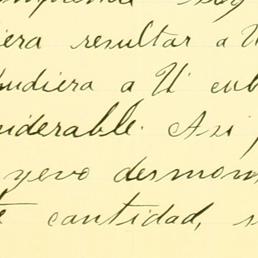 iera resultar a U
udiera a U cub
siderable. Asi
yevo desmon
cantidad, s